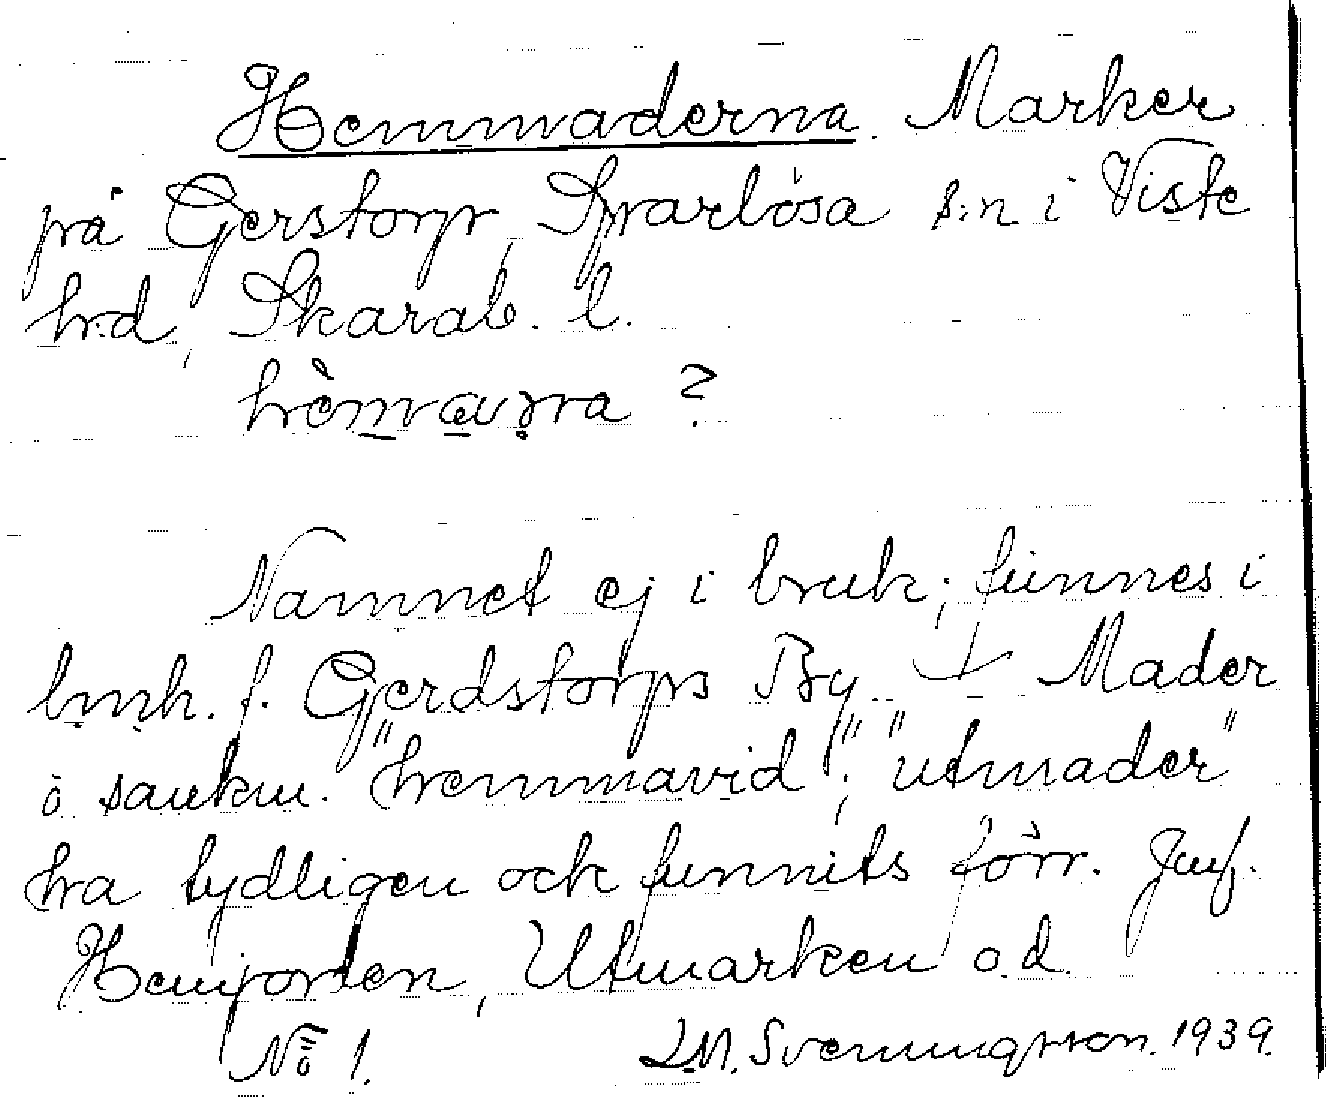 Hemmaderna. Marker
på Gerstorp, Sparlösa s:n i Viste
h:d, Skarab. l.

Namnet ej i bruk; finnes i
bmk. f. Gjerdstorps By. Mader
i saukm. "hemmavid"; "utmader"
ha tydligen ock funnits förr. Jmf.
Hemjorden, Utmarken o.d.
No 1. L.M. Svenungsson. 1939.